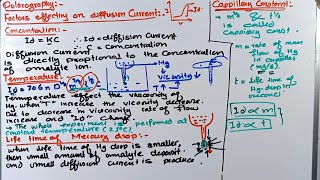 Polarography:
Factors effecting on diffusion Current:-
Concentration:-
Id = KC
Id = diffusion Current
Diffusion Current ∝ Concentration
Diffusion Current is directly proportional to the Concentration
of analyte ion.
Temperature
Id = 706 n D m t
Hg
Viscosity
Temperature effect the viscosity of
Hg. when "T" increase the viscosity decrease.
Due to decrease in viscosity rate of flow
increase and "Id" change.
→ The whole experiment is performed at
Constant temperature
Life time of Mercury drop:-
when life time of Hg drop is smaller,
then small amount of analyte deposit
and small diffusion current is produce.
Capillary Constant:-
m & t are
called
Capillary Const.
m = rate of mass
flow of Hg
t = life time of
Hg drop in
Id ∝ m
Id ∝ t